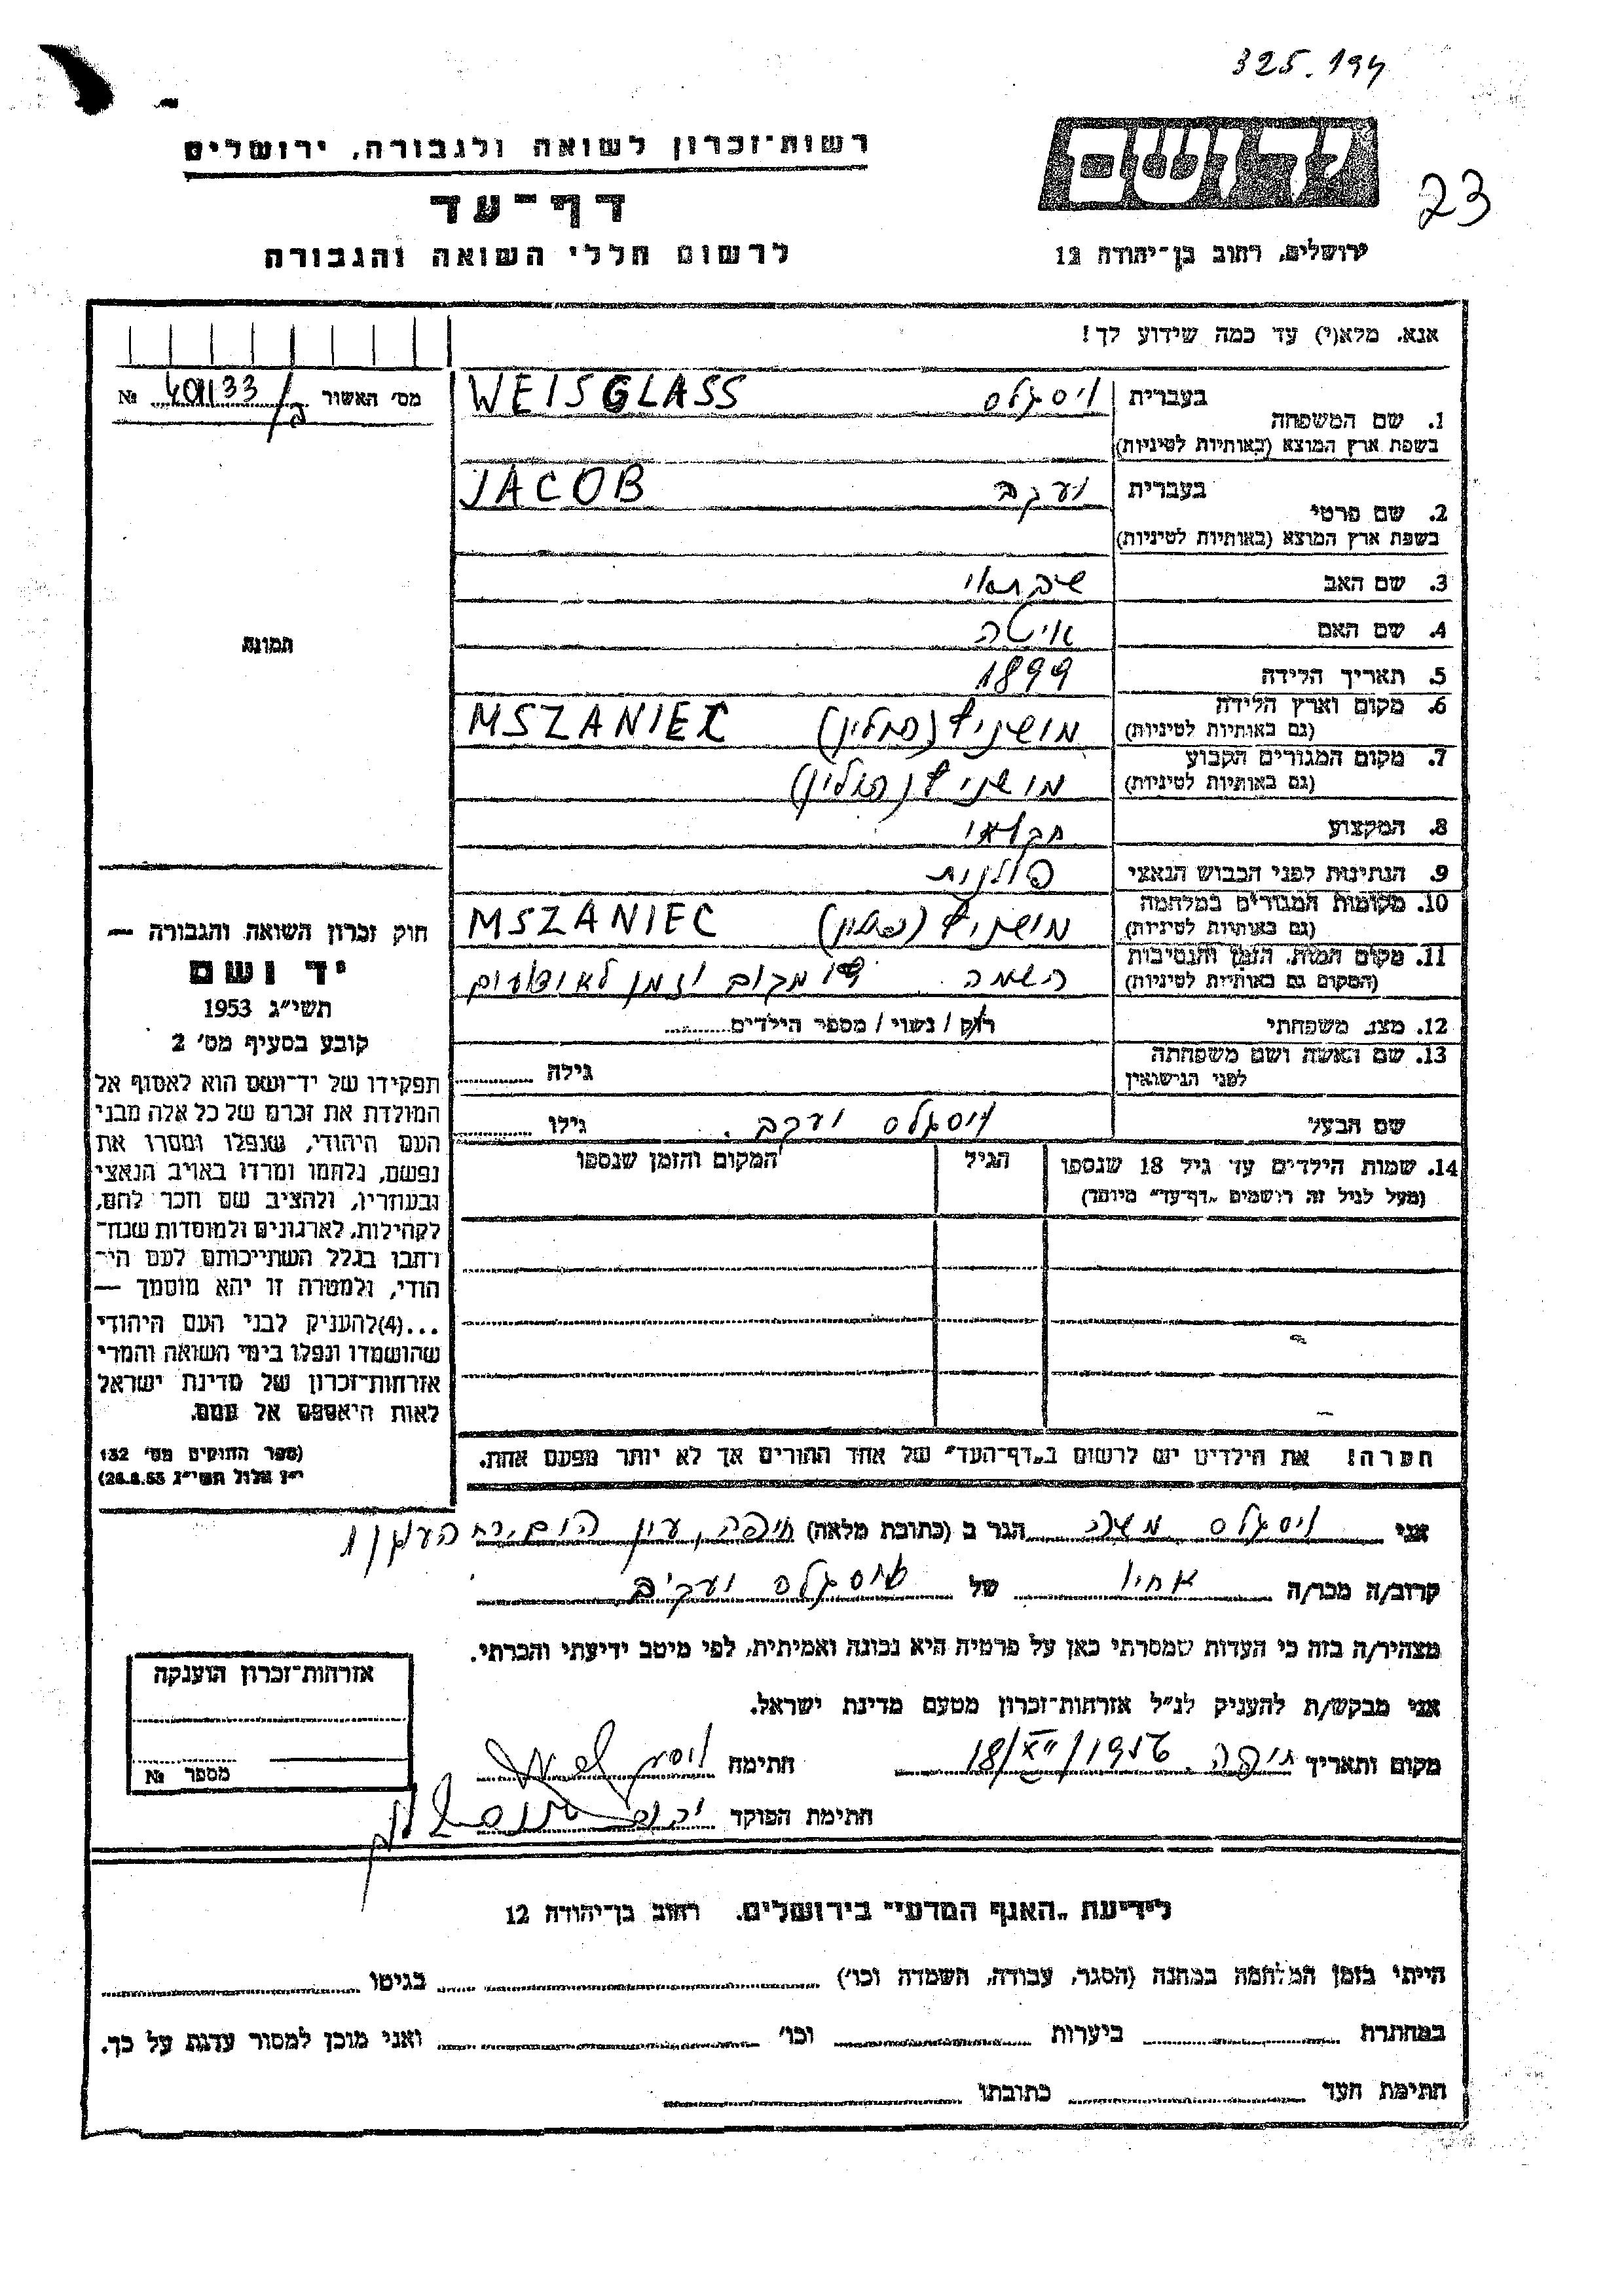 325.194
רשות־זכרון לשואה ולגבורה, ירושלים
דף־עד
לרשום חללי השואה והגבורה
ידושם
23
ירושלים, רחוב בן־יהודה 12
אנא, מלא(י) עד כמה שידוע לך!
מס׳ האשור № 401133/
1. שם המשפחה בעברית ויסגלס WEISGLASS
בשפת ארץ המוצא (באותיות לטיניות)
2. שם פרטי בעברית יעקב JACOB
בשפת ארץ המוצא (באותיות לטיניות)
3. שם האב שבתאי
4. שם האם איטה
תמונה
5. תאריך הלידה 1899
6. מקום וארץ הלידה מושניץ (פולין) MSZANIEC
(גם באותיות לטיניות)
7. מקום המגורים הקבוע מושניץ (פולין)
(גם באותיות לטיניות)
8. המקצוע חקלאי
9. הנתינות לפני הכבוש הנאצי פולנית
10. מקומות המגורים במלחמה מושניץ (פולין) MSZANIEC
(גם באותיות לטיניות)
11. מקום המות, הזמן והנסיבות השמדה מקום וזמן לא
(המקום גם באותיות לטיניות)
12. מצב משפחתי רוק / נשוי / מספר הילדים
13. שם האשה ושם משפחתה גילה
לפני הנישואין
שם הבעל ויסגלס יעקב. גילו
14. שמות הילדים עד גיל 18 שנספו הגיל המקום והזמן שנספו
(מעל לגיל זה רושמים „דף־עד״ מיוחד)
חוק זכרון השואה והגבורה —
יד ושם
תשי״ג 1953
קובע בסעיף מס׳ 2
תפקידו של יד־ושם הוא לאסוף אל
המולדת את זכרם של כל אלה מבני
העם היהודי, שנפלו ומסרו את
נפשם, נלחמו ומרדו באויב הנאצי
ובעוזריו, ולהציב שם וזכר להם,
לקהילות, לארגונים ולמוסדות שנח־
רבו בגלל השתייכותם לעם הי־
הודי, ולמטרה זו יהא מוסמך —
...(4)להעניק לבני העם היהודי
שהושמדו ונפלו בימי השואה והמרי
אזרחות־זכרון של מדינת ישראל
לאות היאספם אל עמם.
(ספר החוקים מס׳ 132
י״ז אלול תשי״ג 28.8.53)
הערה! את הילדים יש לרשום ב„דף־העד״ של אחד ההורים אך לא יותר מפעם אחת.
אני ויסגלס משה הגר ב (כתובת מלאה) חיפה, עין הים, רח העוגן 1
קרוב/ה מכר/ה אחיו של ויסגלס יעקב
מצהיר/ה בזה כי העדות שמסרתי כאן על פרטיה היא נכונה ואמיתית, לפי מיטב ידיעתי והכרתי.
אני מבקש/ת להעניק לנ״ל אזרחות־זכרון מטעם מדינת ישראל.
מקום ותאריך חיפה 18/XII/1956 חתימה
חתימת הפוקד
אזרחות־זכרון הוענקה
מספר №
לידיעת „האגף המדעי״ בירושלים, רחוב בן־יהודה 12
הייתי בזמן המלחמה במחנה (הסגר, עבודה, השמדה וכו׳) בגיטו
במחתרת ביערות וכו׳ ואני מוכן למסור עדות על כך.
חתימת העד כתובתו